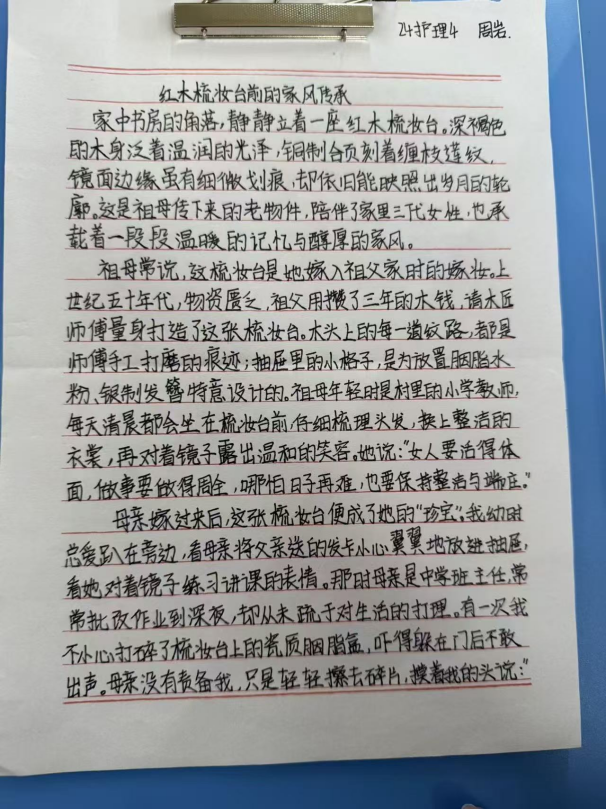 24护理4 周岩.
红木梳妆台前的家风传承
家中书房的角落,静静立着一座红木梳妆台。深褐色
的木身泛着温润的光泽,铜制合页刻着缠枝莲纹,
镜面边缘虽有细微划痕,却依旧能映照出岁月的轮
廓。这是祖母传下来的老物件,陪伴了家里三代女性,也承
载着一段段温暖的记忆与醇厚的家风。
祖母常说,这梳妆台是她嫁入祖父家时的嫁妆。上
世纪五十年代,物资匮乏,祖父用攒了三年的木钱,请木匠
师傅量身打造了这张梳妆台。木头上的每一道纹路,都是
师傅手工打磨的痕迹;抽屉里的小格子,是为放置胭脂水
粉、银制发簪特意设计的。祖母年轻时是村里的小学教师,
每天清晨都会坐在梳妆台前,仔细梳理头发,换上整洁的
衣裳,再对着镜子露出温和的笑容。她说:"女人要活得体
面,做事要做得周全,哪怕日子再难,也要保持整洁与端庄。"
母亲嫁过来后,这张梳妆台便成了她的"珍宝"。我幼时
总爱趴在旁边,看母亲将父亲送的发卡小心翼翼地放进抽屉,
看她对着镜子练习讲课的表情。那时母亲是中学班主任,常
常批改作业到深夜,却从未疏于对生活的打理。有一次我
不小心打碎了梳妆台上的瓷质胭脂盒,吓得躲在门后不敢
出声。母亲没有责备我,只是轻轻擦去碎片,摸着我的头说:"